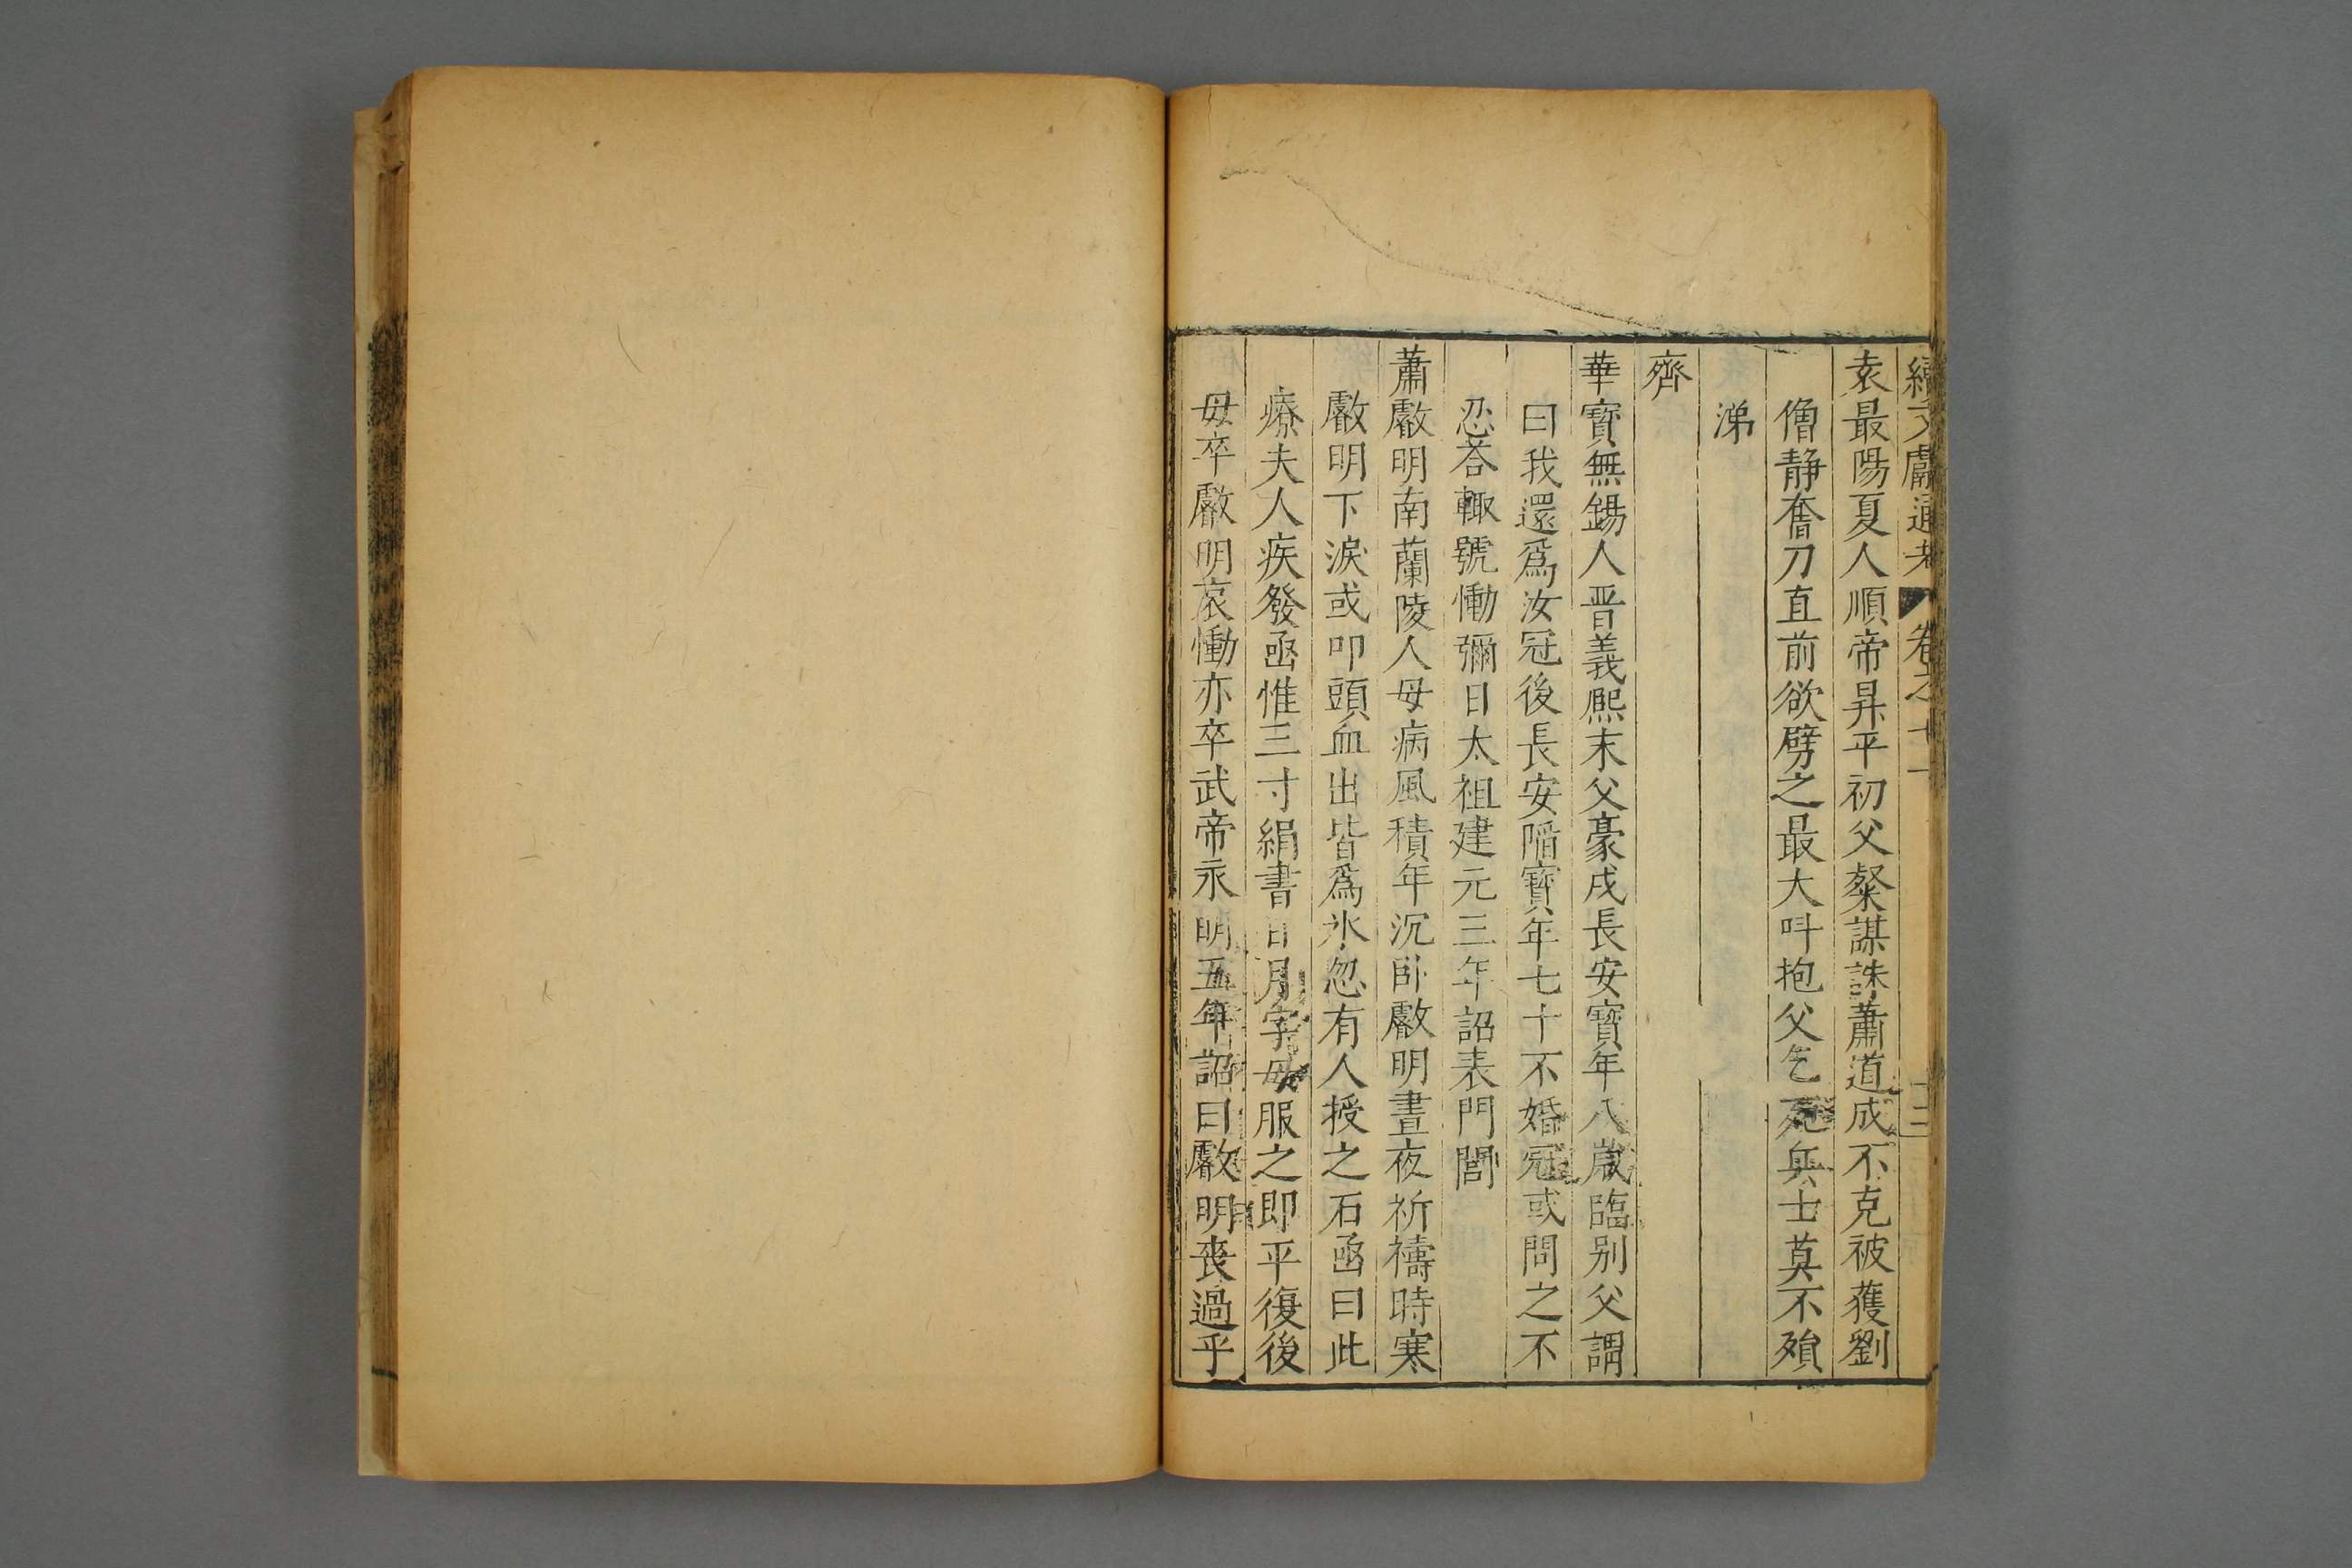 續文獻通考 卷之七十一 十三
袁最陽夏人順帝昇平初父粲謀誅蕭道成不克被獲劉
僧静奮刀直前欲劈之最大呌抱父乞死兵士莫不殞
涕
齊
華寶無錫人晉義熙末父豪戍長安寶年八歲臨别父謂
曰我還爲汝冠後長安䧟寶年七十不婚冠或問之不
忍荅輙號慟彌日太祖建元三年詔表門閭
蕭叡明南蘭陵人母病風積年沉卧叡明晝夜祈禱時寒
叡明下淚或叩頭血出皆爲氷忽有人授之石函曰此
療夫人疾發函惟三寸絹書日月字母服之即平復後
母卒叡明哀慟亦卒武帝永明五年詔曰叡明喪過乎